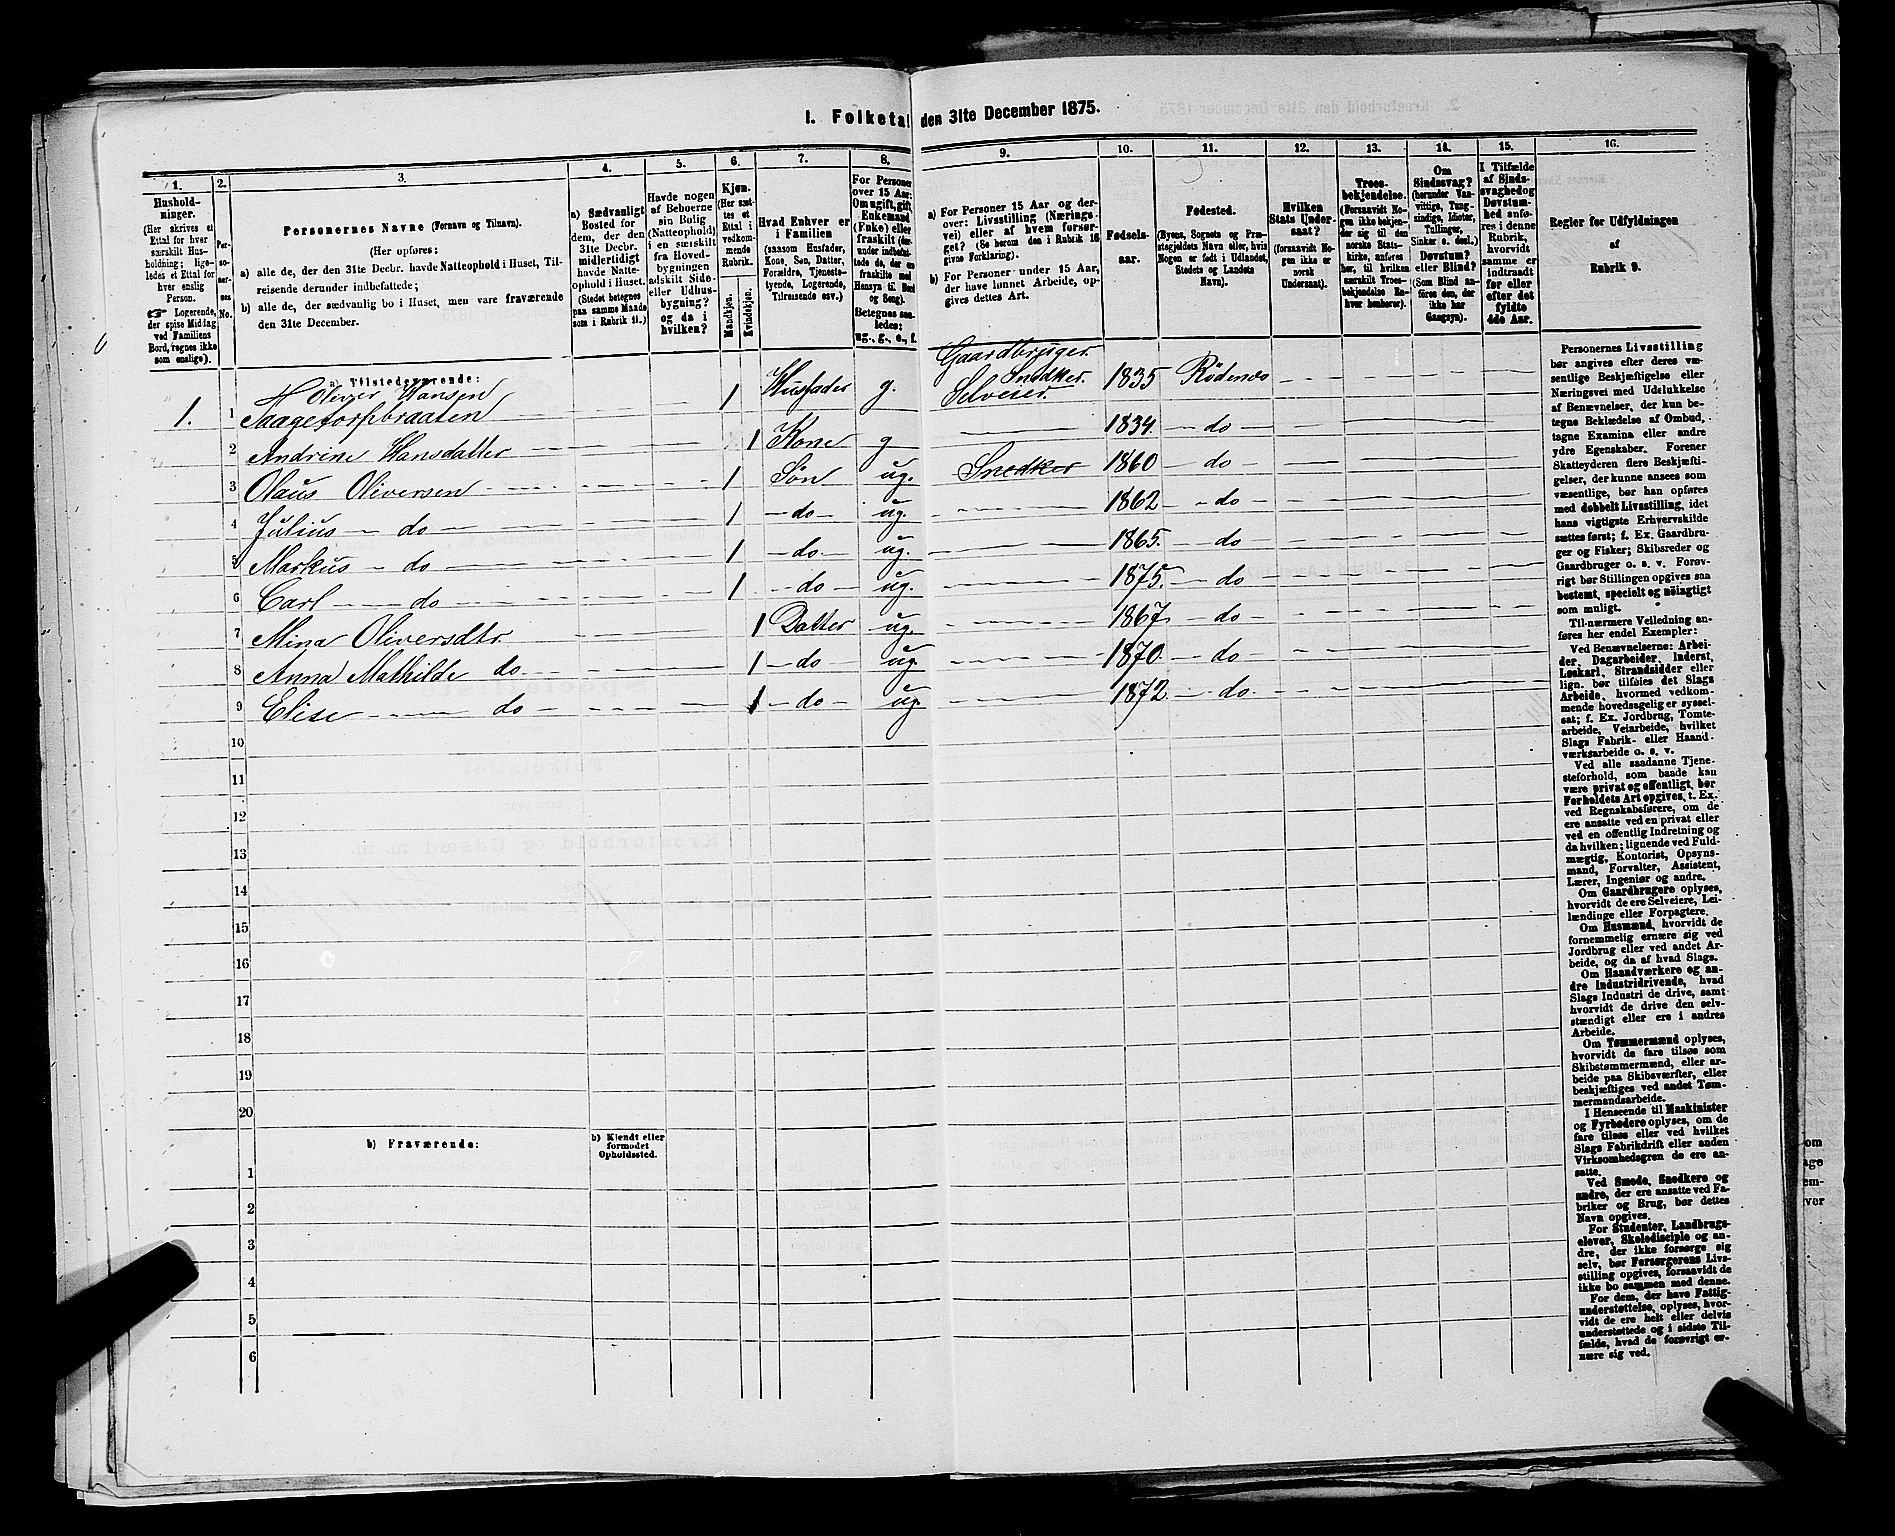 1. Folketal den 31te December 1875.
1. 2. 3. 4. 5. 6. 7. 8. 9. 10. 11. 12. 13. 14. 15. 16.
Husholdninger.
(Her skrives et
Ettal for hver
særskilt Husholdning;
ligeledes et Ettal for
hver enslig
Person.
☞ Logerende,
der spise Middag
ved Familiens
Bord, regnes ikke
som enslige).
Personernes No.
Personernes Navne (Fornavn og Tilnavn).
(Her opføres:
a) alle de, der den 31te Decbr. havde Natteophold i Huset, Tilreisende
derunder indbefattede;
b) alle de, der sædvanlig bo i Huset, men vare fraværende
den 31te December.
a) Sædvanligt
Bosted for
dem, der den
31te Decbr.
midlertidigt
havde Natteophold
i Huset.
(Stedet betegnes
paa samme Maade
som i Rubrik 11.)
Havde nogen
af Beboerne
sin Bolig
(Natteophold)
i en særskilt
fra Hovedbygningen
adskilt Side-
eller Udhusbygning?
og da i
hvilken?
Kjøn.
(Her sættes
et
Ettal i
vedkommende
Rubrik.
Mandkjøn. Kvindekjøn.
Hvad Enhver er
i Familien
(saasom Husfader,
Kone, Søn, Datter,
Forældre, Tjenestetyende,
Logerende,
Tilreisende osv.)
For Personer
over 15 Aar:
Om ugift, gift,
Enkemand
(Enke) eller
fraskilt (derunder
indbefattede
de, der ere
fraskilte med
Hensyn til Bord
og Seng).
Betegnes saaledes:
ug., g., e., f.
a) For Personer 15 Aar og derover:
Livsstilling (Næringsvei)
eller af hvem forsørget?
(Se herom den i Rubrik 16
givne Forklaring).
b) For Personer under 15 Aar,
der have lønnet Arbeide, opgives
dettes Art.
Fødselsaar.
Fødested.
(Byens, Sognets og Præstegjeldets
Navn eller, hvis
Nogen er født i Udlandet,
Stedets og Landets
Navn).
Hvilken
Stats Undersaat?
(forsaavidt Nogen
ikke er
norsk
Undersaat).
Troesbekjendelse.
(Forsaavidt Nogen
ikke bekjender
sig til den
norske Statskirke,
anføres
her, til hvilken
særskilt Troesbekjendelse
Enhver
henhører).
Om
Sindssvag?
(herunder Vanvittige,
Tungsindige,
Idioter,
Tullinger,
Sinker o. desl.)
Døvstum?
eller Blind?
(Som Blind anføres
den, der
ikke har
Gangsyn).
I Tilfælde
af Sindssvaghed
og
Døvstumhed
anføres
i denne
Rubrik,
hvorvidt
samme er
indtraadt
før eller
efter det
fyldte
4de Aar.
Regler for Udfyldningen
af
Rubrik 9.
a) Tilstedeværende:
1. 1 Oliver Hansen
Saagetorpbraaten 1 Husfader g. Gaardbruger. Snedker. Selveier. 1835 Rödenes
2 Andrine Hansdatter 1 Kone g 1834 do
3 Olaus Oliversen 1 Søn ug. Snedker 1860 do
4 Julius do 1 do ug. 1862 do
5 Markus do 1 do ug. 1865. do
6 Carl do 1 do ug. 1875. do
7 Mina Oliversdtr. 1 Datter ug. 1867. do
8 Anna Mathilde do 1 do ug. 1870. do
9 Elise do 1 do ug. 1872 do.
10
11
12
13
14
15
16
17
18
19
20
b) Fraværende:
b) Kjendt eller
formodet
Opholdssted.
1
2
3
4
5
6
Personernes Livsstilling
bør angives efter deres væsentlige
Beskjæftigelse eller
Næringsvei med Udelukkelse
af Benævnelser, der kun betegne
Beklædelse af Ombud,
tagne Examina eller andre
ydre Egenskaber. Forener
Skatteyderen flere Beskjæftigelser,
der kunne ansees som
væsentlige, bør han opføres
med dobbelt Livsstilling, idet
hans vigtigste Erhvervskilde
sættes først; f. Ex. Gaardbruger
og Fisker; Skibsreder og
Gaardbruger o. s. v. Forøvrigt
bør Stillingen opgives saa
bestemt, specielt og nöiagtigt
som muligt.
Til nærmere Veiledning anføres
her endel Exempler:
Ved Benævnelserne: Arbeider,
Dagarbeider, Inderst,
Løskarl, Strandsidder eller
lign. bør tilføies det Slags
Arbeide, hvormed vedkommende
hovedsagelig er sysselsat;
f. Ex. Jordbrug, Tomtearbeide,
Veiarbeide, hvilket
Slags Fabrik- eller Haandværksarbeide
o. s. v.
Ved alle saadanne Tjenesteforhold,
som baade kan
være privat og offentligt, bør
Forholdets Art opgives, t. Ex.
ved Regnskabsførere, om de
ere ansatte ved en privat eller
ved en offentlig Indretning og
da hvilken; lignende ved Fuldmægtig,
Kontorist, Opsynsmand,
Forvalter, Assistent,
Lærer, Ingeniør og andre.
Om Gaardbrugere oplyses,
hvorvidt de ere Selveiere, Leilændinge
eller Forpagtere.
Om Husmænd, hvorvidt de
fornemmelig ernære sig ved
Jordbrug eller ved andet Arbeide,
og da af hvad Slags.
Om Haandværkere og andre
Industridrivende, hvad
Slags Industri de drive, samt
hvorvidt de drive den selvstændigt
eller ere i andres
Arbeide.
Om Tømmermænd oplyses,
hvorvidt de fare tilsøs som
Skibstømmermænd, eller arbeide
paa Skibsværfter, eller
beskjæftiges ved andet Tømmermandsarbeide.
I Henseende til Maskinister
og Fyrbødere oplyses, om de
fare tilsøs eller ved hvilket
Slags Fabrikdrift eller anden
Virksomhedsgren de ere ansatte.
Ved Smede, Snedkere og
andre, der ere ansatte ved Fabriker
og Brug, bør dettes
Navn opgives.
For Studenter, Landbrugselever,
Skoledisciple og andre,
der ikke forsørge sig
selv, bør Forsørgerens Livsstilling
opgives, forsaavidt de
ikke bo sammen med denne.
For dem, der have Fattigunderstøttelse,
oplyses, hvorvidt
de ere helt eller delvis
understøttede og i sidste Tilfælde,
hvad de forøvrigt ernære
sig ved.